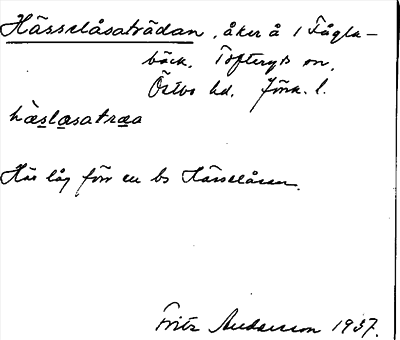 Hässelåsaträdan, åker å 1 Fågla-
bäck. Tofteryds sn.
Östbo hd. Jönk. l.
hæslasatræa
Här låg förr en bs Hässelåsen.
Fritz Andersson 1937.